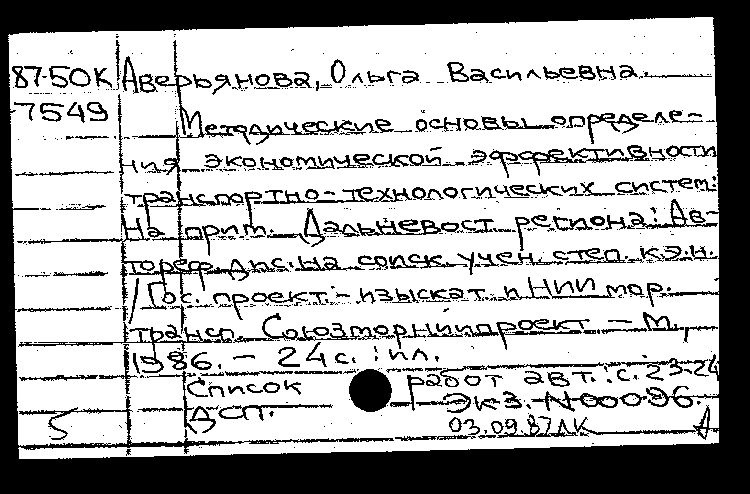 87-50К Аверьянова, Ольга Васильевна.
7549
Методические основы определе-
ния экономической эффективности
транспортно-технологических систем:
На прим. Дальневост. региона: Ав-
тореф. дис. на соиск. учен. степ. к.э.н.
/ Гос. проект.-изыскат. и НИИ мор.
трансп. Союзморниипроект. – М.,
1986. – 24 с.: ил.
Список работ авт.: с. 23-24
ДСП. Экз. N 00096.
5 03.09.87 ЛК А